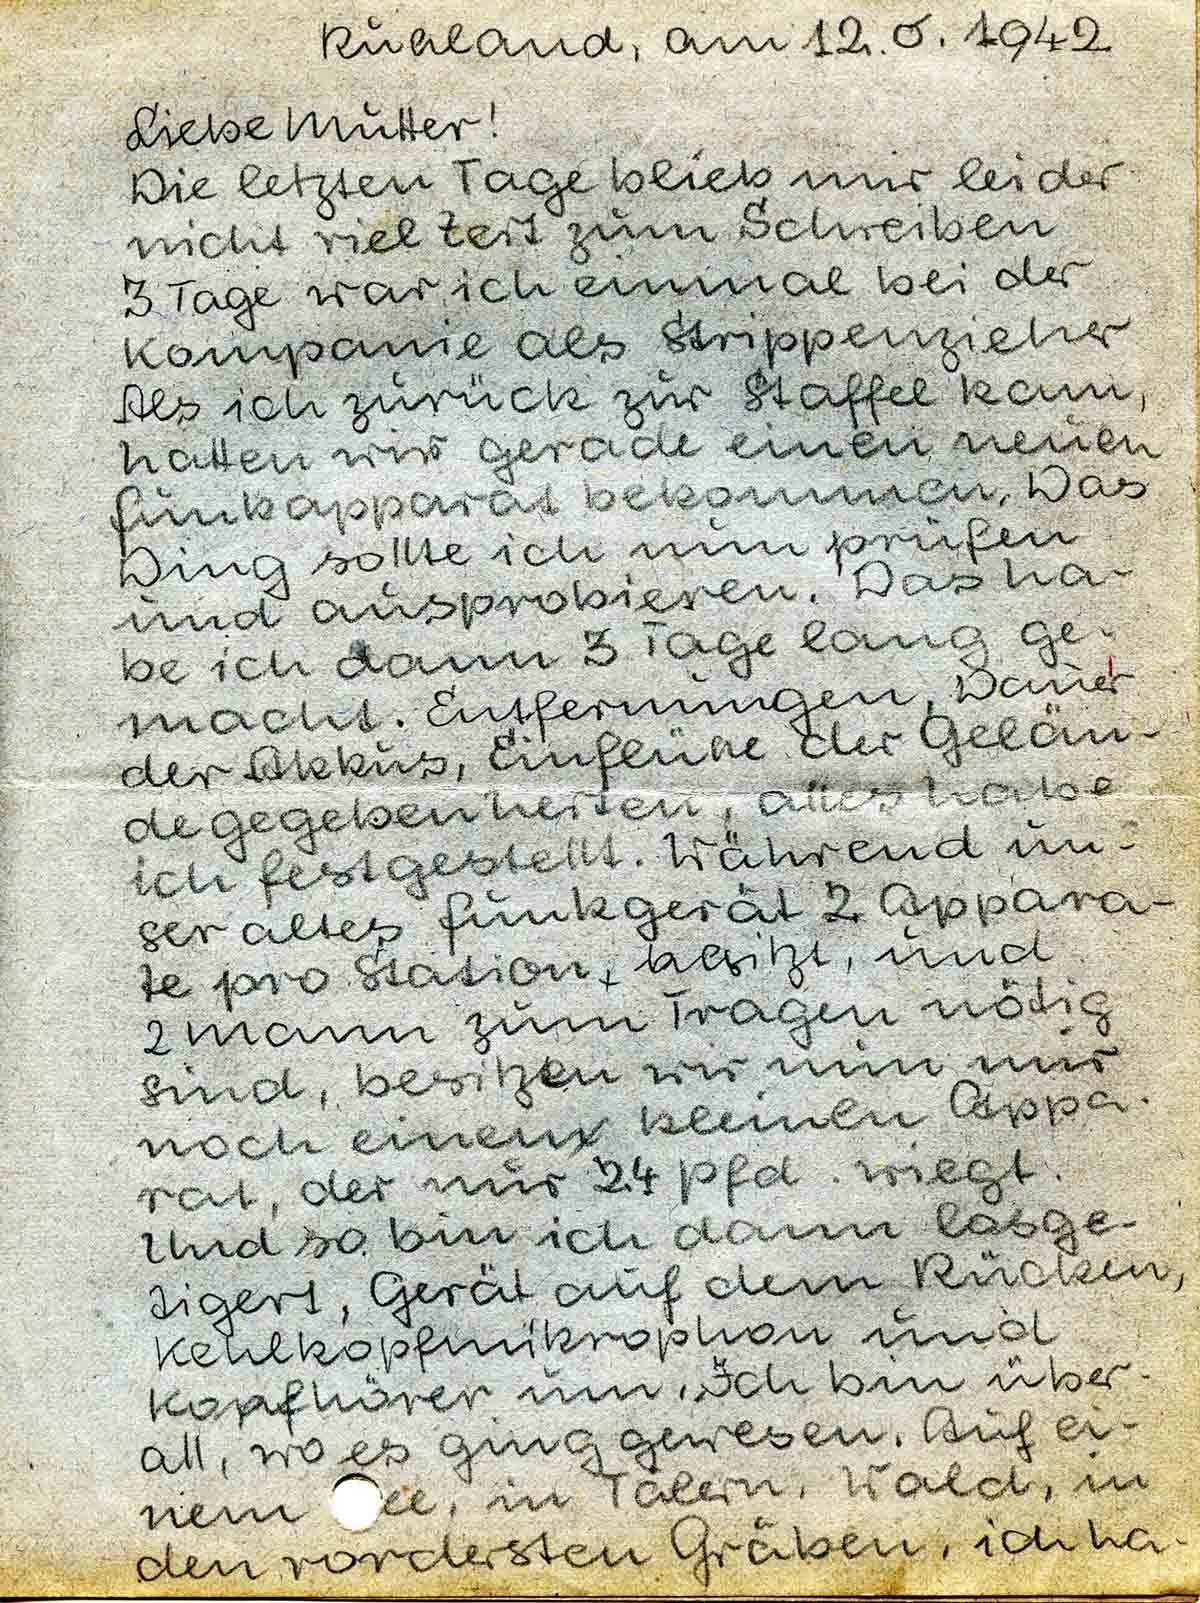 Rußland, am 12.6.1942
Liebe Mutter!
Die letzten Tage blieb mir leider
nicht viel Zeit zum Schreiben
3 Tage war ich einmal bei der
Kompanie als Strippenzieher
Als ich zurück zur Staffel kam,
hatten wir gerade einen neuen
Funkapparat bekommen. Das
Ding sollte ich nun prüfen
und ausprobieren. Das ha-
be ich dann 3 Tage lang ge-
macht. Entfernungen, Dauer
der Akkus, Einflüße der Gelän-
degegebenheiten, alles habe
ich festgestellt. Während un-
ser altes Funkgerät 2 Appara-
te pro Station, besitzt, und
2 Mann zum Tragen nötig
sind, besitzen wir nun nur
noch einen kleinen Appa-
rat, der nur 24 Pfd. wiegt.
Und so bin ich dann losge-
tigert, Gerät auf dem Rücken,
Kehlkopfmikrophon und
Kopfhörer um. Ich bin über-
all, wo es ging gewesen. Auf ei-
nem ee, in Tälern, Wald, in
den vordersten Gräben, ich ha-